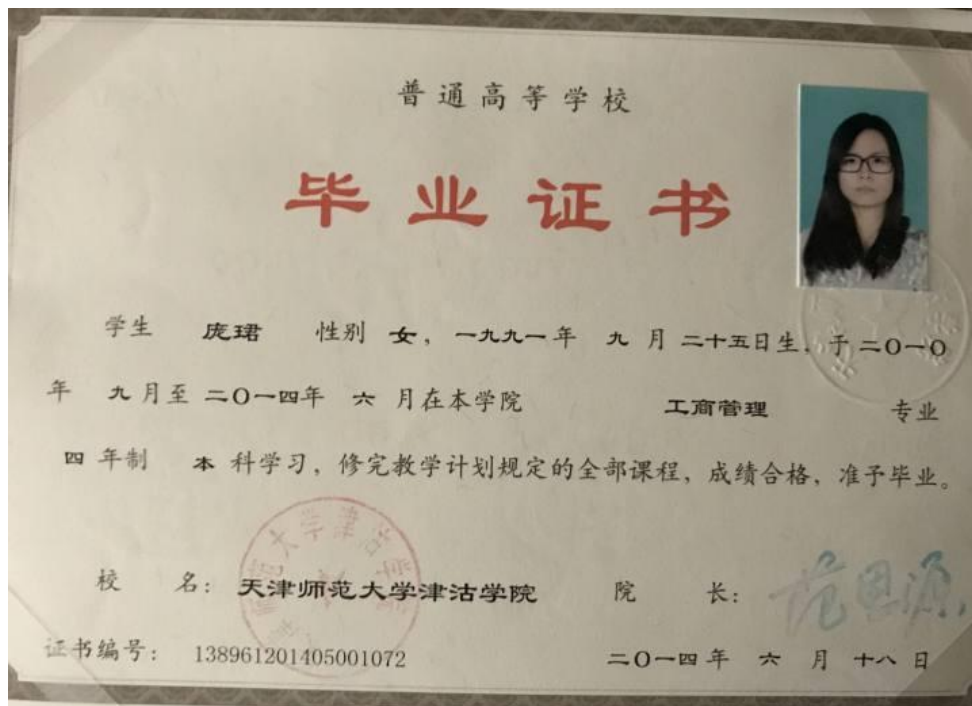 普通高等学校
毕业证书
学生 庞珺 性别 女，一九九一年 九 月 二十五日生，于二〇一〇
年 九月至 二〇一四年 六 月在本学院 工商管理 专业
四 年制 本 科学习，修完教学计划规定的全部课程，成绩合格，准予毕业。
校 名：天津师范大学津沽学院 院 长：范恩源
证书编号：138961201405001072 二〇一四年 六 月 十八 日
师范大学津沽学院